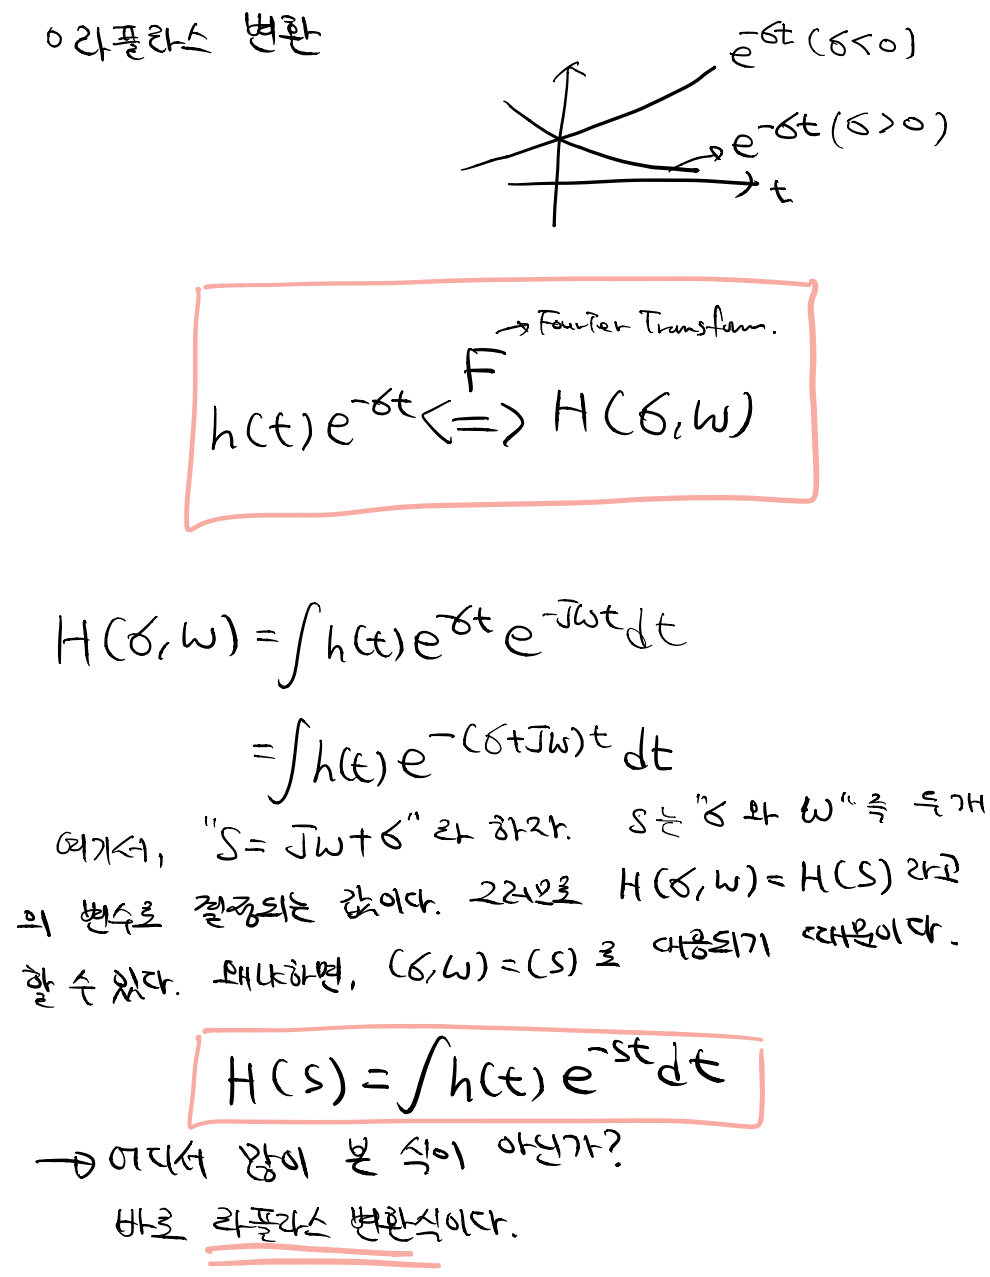 ○ 라플라스 변환
e^{-σt} (σ<0)
e^{-σt} (σ>0)
t
→ Fourier Transform.
F
h(t) e^{-σt} <=> H(σ,ω)
H(σ,ω) = ∫h(t) e^{-σt} e^{-Jωt} dt
= ∫h(t) e^{-(σ+Jω)t} dt
여기서, "S = Jω+σ" 라 하자. S는 "σ 와 ω" 즉 두개
의 변수로 결정되는 값이다. 그러므로 H(σ,ω) = H(S) 라고
할 수 있다. 왜냐하면, (σ,ω) = (S) 로 대응되기 때문이다.
H(S) = ∫h(t) e^{-st} dt
→ 어디서 많이 본 식이 아닌가?
바로 라플라스 변환식이다.